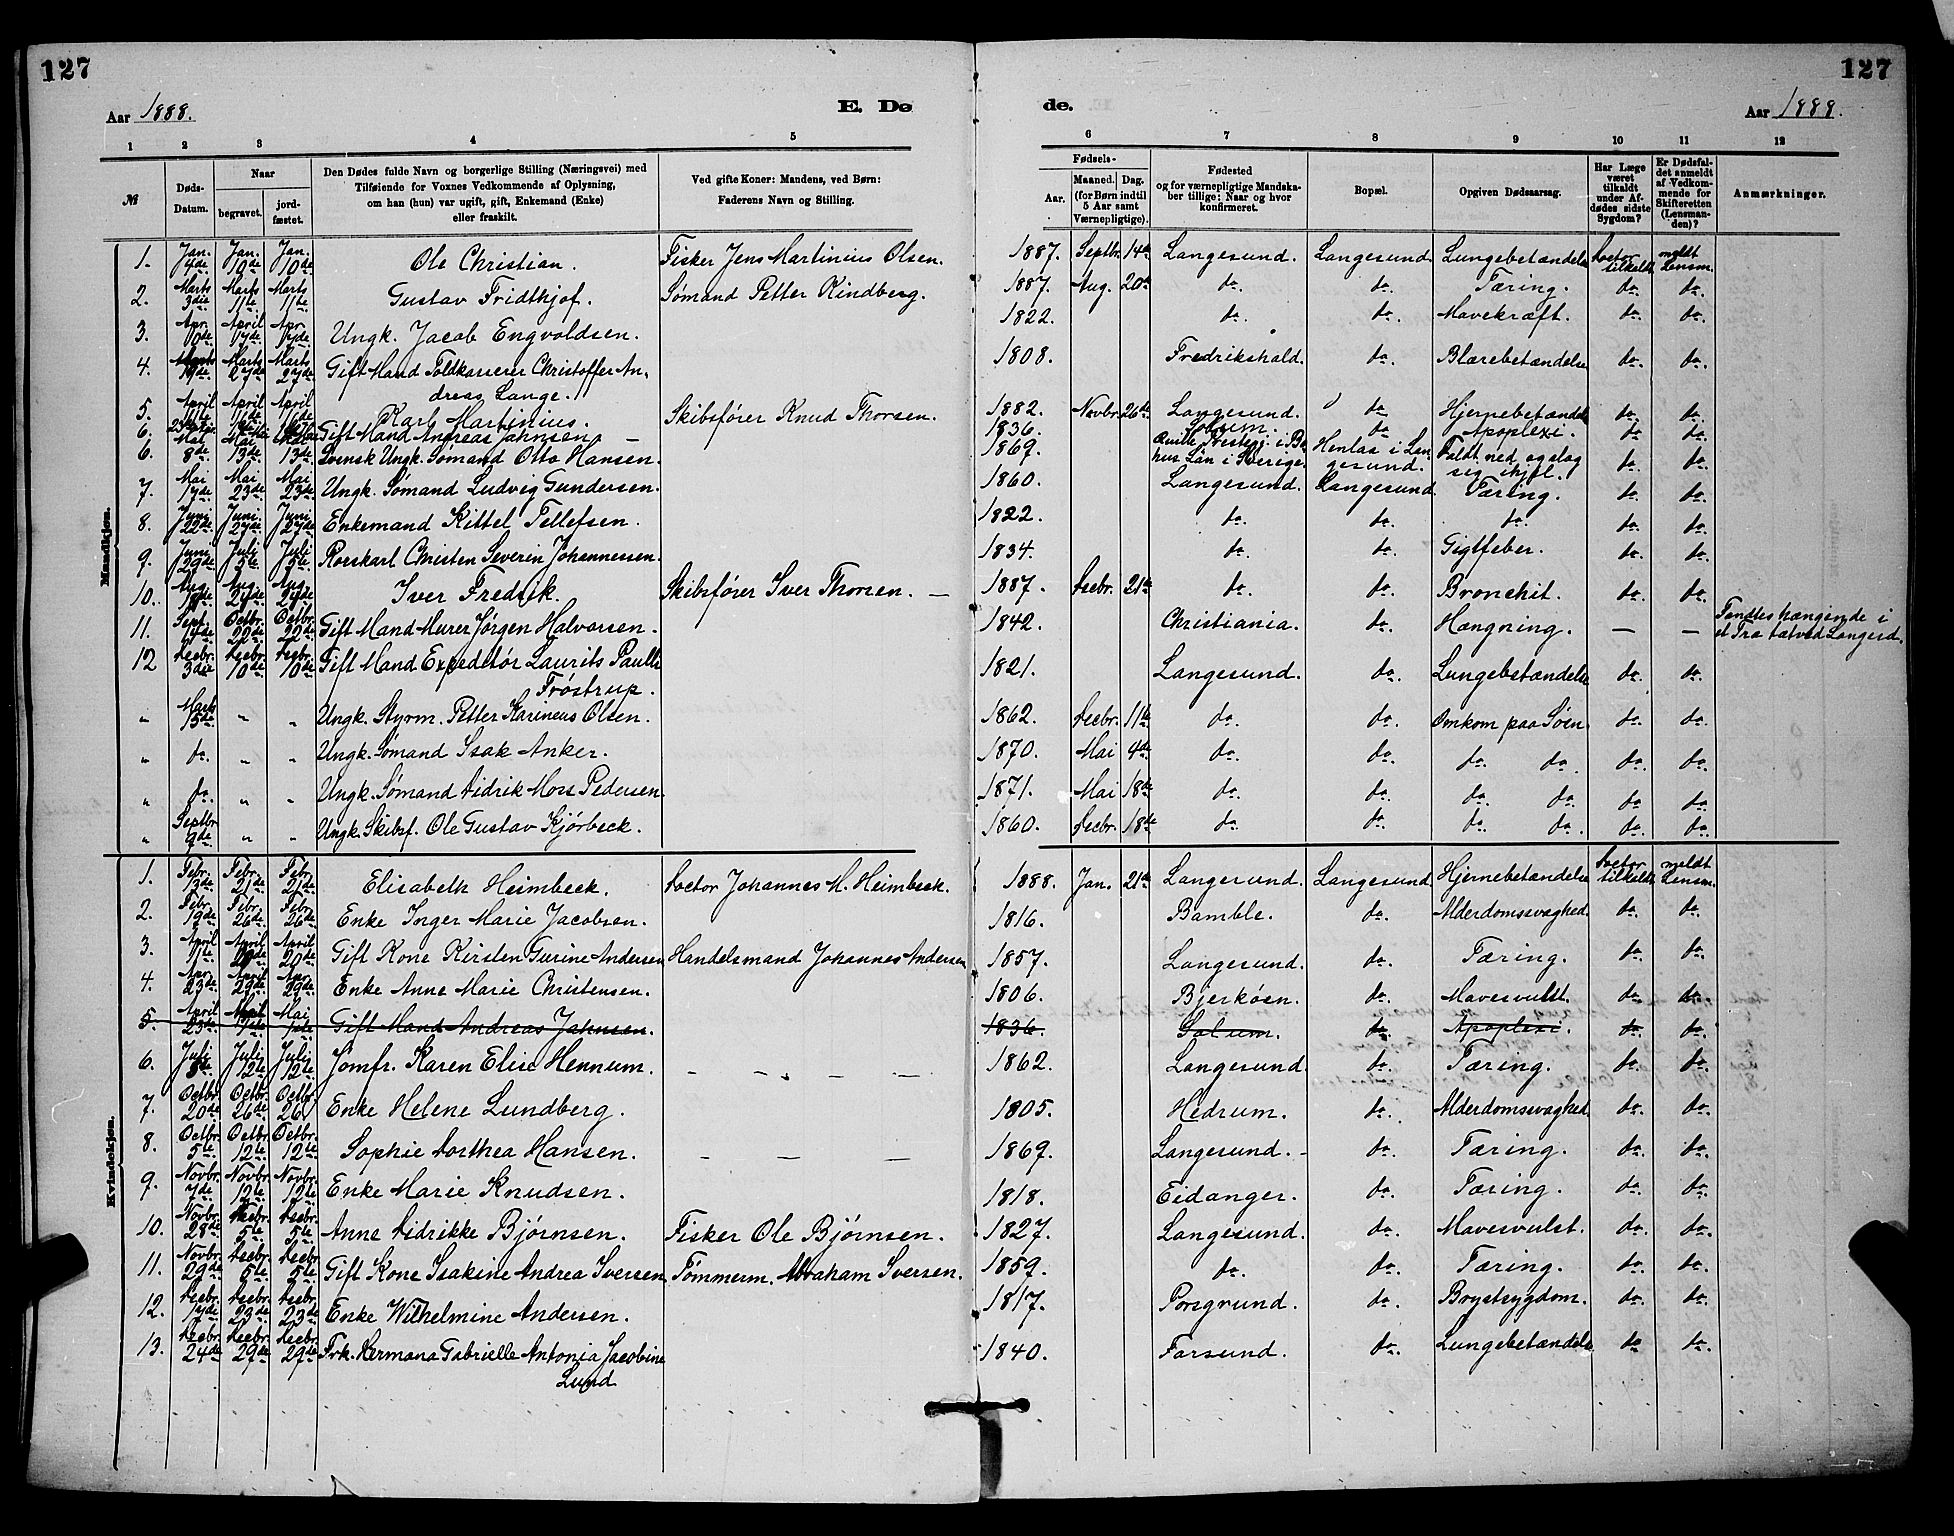 127
127
Aar 1888.
E. Dø
de.
Aar 1888.
1 2 3 4 5 6 7 8 9 10 11 12
№
Døds-Datum.
Naar
begravet.
jord-fæstet.
Den Dødes fulde Navn og borgerlige Stilling (Næringsvei) med
Tilføiende for Voxnes Vedkommende af Oplysning,
om han (hun) var ugift, gift, Enkemand (Enke)
eller fraskilt.
Ved gifte Koner: Mandens, ved Børn:
Faderens Navn og Stilling.
Fødsels-
Aar.
Maaned. Dag.
(for Børn indtil
5 Aar samt
Værnepligtige).
Fødested
og for værnepligtige Mandska-
ber tillige: Naar og hvor
konfirmeret.
Bopæl.
Opgiven Dødsaarsag.
Har Læge
været
tilkaldt
under Af-
dødes sidste
Sygdom?
Er Dødsfal-
det anmeldt
af Vedkom-
mende for
Skifteretten
(Lensman-
den)?
Anmærkninger.
Mandkjøn.
1. Jan. 4de Jan. 10de Jan. 10de Ole Christian. Fisker Jens Martinius Olsen. 1887. Septbr. 14de Langesund. Langesund. Lungebetændelse Doctor tilkaldt meldt Lensm.
2. Marts 3die Marts 11te Marts 11te Gustav Fridthjof. Sømand Petter Kindberg. 1887. Aug. 20de do. do. Tæring. do. do.
3. Apr. 10de April 17de Apr. 17de Ungk. Jacob Engvoldsen. 1822. do. do. Mavekræft. do. do.
4. Marts 19de Marts 27de Marts 27de Gift Mand Toldkasserer Christoffer An-
dreas Lange. 1808. Fredrikshald. do. Blærebetændelse do. do.
5. April 11te April 16de April 16de Karl Martinius. Skibsfører Knud Thorsen. 1882. Novbr. 26de Langesund. do Hjernebetændelse do. do.
6. Gift Mand Andreas Jahnsen — 1836. Solum. do. Apoplexi. do do.
6. Mai 8de Mai 13de 13de Svensk Ungk. Sømand Otto Hansen. 1869. Qville Presteg. i Bo-
hus Län i Sverige. Henlaa i Lan-
gesund. Faldt ned og slog
sig ihjel. do. do.
7. Mai 17de Mai 23de Mai 23de Ungk. Sømand Ludvig Gundersen. 1860. Langesund. Langesund. Tæring. do. do.
8. Juni 22de Juni 27de Juni 27de Enkemand Kittel Tellefsen. 1822. do. do. do. do. do.
9. Juni 29de Juli 5te Juli 5te Rorskarl Christen Severin Johannessen. 1834. do. do. Gigtfeber. do. do.
10. Aug. 18de Aug. 27de Aug. 27de Iver Fredrik. Skibsfører Iver Thorsen. — 1887. Decbr. 21de do. do. Bronchit. do. do.
11. Sept. 14de Octbr. 22de Octbr. 22de Gift Mand Murer Jørgen Halvorsen. 1842. Christiania. do. Hængning. — — Fandtes hængende i
et Træ tæt ved Langesd.
12 Decbr. 3die Decbr. 10de Decbr. 10de Gift Mand Expeditør Laurits Paulli
Frøstrup. 1821. Langesund. do. Lungebetændelse do. do.
„ Marts 15de „ „ Ungk. Styrm. Petter Karineus Olsen. 1862. Decbr. 11te do. do. Omkom paa Søen do. do.
„ do. „ „ Ungk. Sømand Isak Anker. 1870. Mai 4de do. do. do. do. do. do.
„ do. „ „ Ungk. Sømand Didrik Moss Pedersen. 1871. Mai 18de do. do. do. do. do. do.
„ Septbr. 9de „ „ Ungk. Skibsf. Ole Gustav Kjørbeck. 1860. Decbr. 18de do do. do. do. do. do.
Kvindekjøn.
1. Febr. 13de Febr. 21de Febr. 21de Elisabeth Heimbeck. Doctor Johannes M. Heimbeck. 1888. Jan. 21de Langesund. Langesund. Hjernebetændelse Doctor tilkaldt meldt Lensm.
2. Febr. 19de Febr. 26de Febr. 26de Enke Inger Marie Jacobsen. 1816. Bamble. do. Alderdomssvaghed. do do.
3. April 11te April 20de April 20de Gift Kone Kirsten Gurine Andersen Handelsmand Johannes Andersen 1857. Langesund. do. Tæring. do do.
4. Apr. 23de April 29de Apr. 29de Enke Anne Marie Christensen. 1806. Bjerkøen. do. Mavesvulst. do do.
5. April 23de Mai 1ste Mai 1ste Gift Mand Andreas Jahnsen. 1836. Solum. do Apoplexi. do. do.
6. Juli 8de Juli 12te Juli 12te Jomfr. Karen Elise Hennum. — — — — 1862. Langesund. do. Tæring. do. do.
7. Octbr. 20de Octbr. 26de Octbr. 26 Enke Helene Lundberg. 1805. Hedrum. do. Alderdomssvaghed. do. do.
8. Octbr. 5te Octbr. 12te Octbr. 12te Sophie Dorthea Hansen. — — — 1869. Langesund. — do. Tæring. do. do.
9. Novbr. 7de Novbr. 12te Novbr. 12te Enke Marie Knudsen. 1818. Eidanger. do. Tæring. do. do.
10. Novbr. 28de Decbr. 5te Decbr. 5te Anne Didrikke Bjørnsen. Fisker Ole Bjørnsen. 1827. Langesund. do. Mavesvulst. do. do.
11. Novbr. 29de Decbr. 5te Decbr. 5te Gift Kone Isakine Andrea Iversen. Tømmerm. Abraham Iversen. 1859. do. do. Tæring. do. do.
12. Decbr. 17de Decbr. 23de Decbr. 23de Enke Wilhelmine Andersen. 1817. Porsgrund. do. Brystsygdom. do. do.
13. Decbr. 24de Decbr. 29de Decbr. 29de Frk. Hermana Gabrielle Antonia Jacobine
Lund 1840. Farsund. do. Lungebetændelse do do.